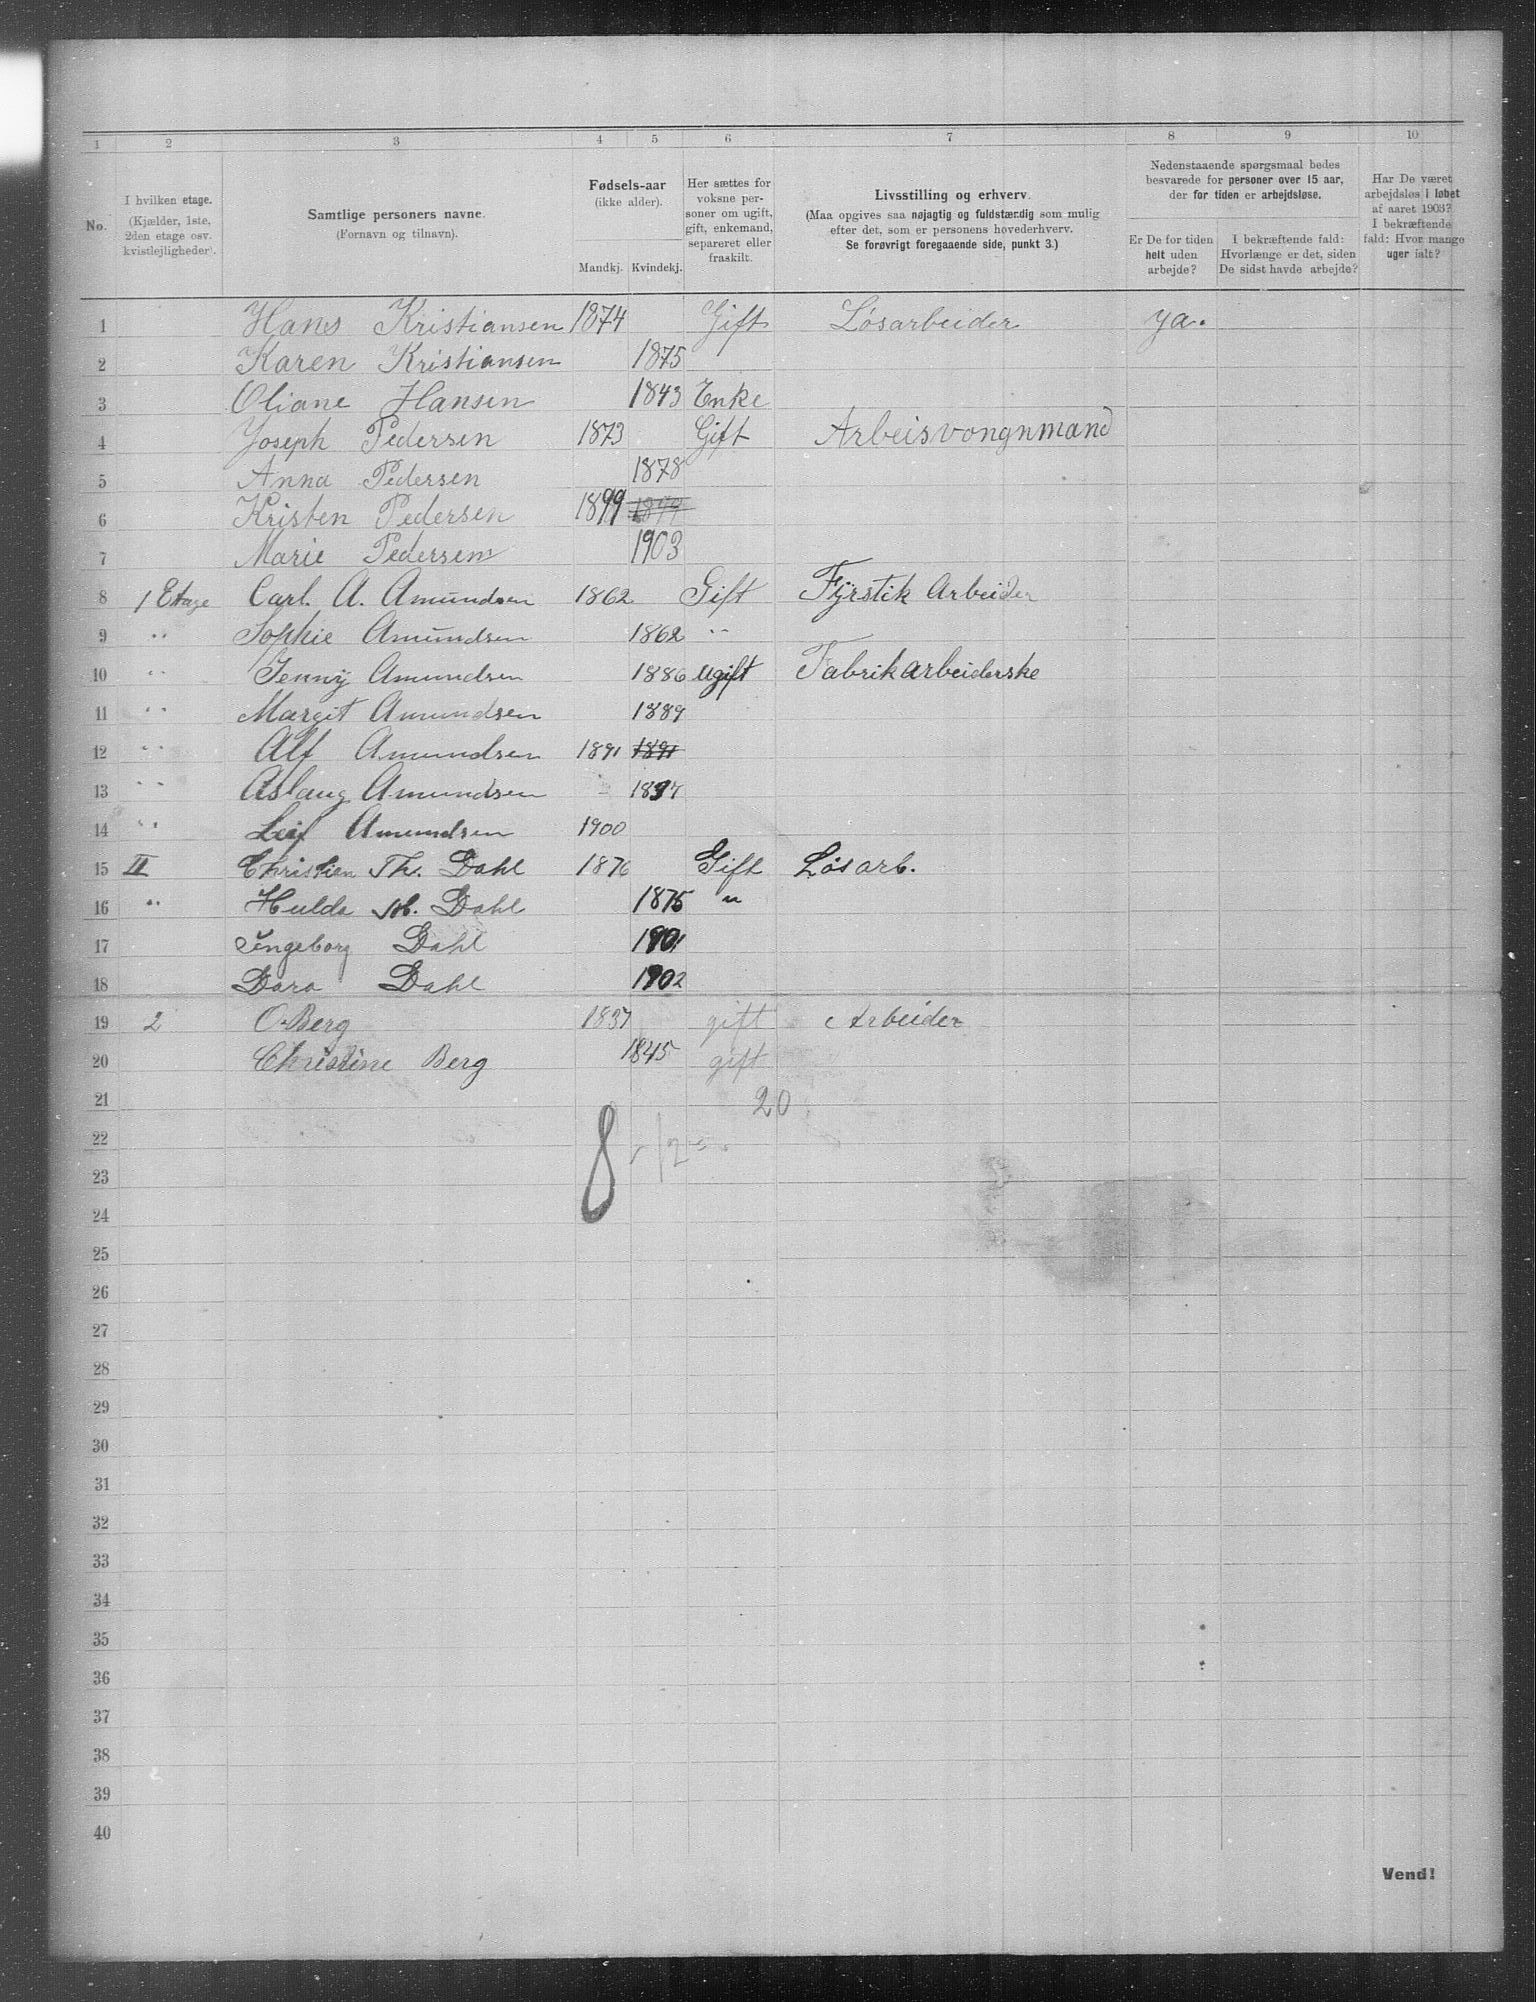 1 2 3 4 5 6 7 8 9 10
No.
I hvilken etage.
(Kjælder, 1ste,
2den etage osv.
kvistlejligheder).
Samtlige personers navne.
(Fornavn og tilnavn).
Fødsels-aar
(ikke alder).
Mandkj. Kvindekj.
Her sættes for
voksne per-
soner om ugift,
gift, enkemand,
separeret eller
fraskilt.
Livsstilling og erhverv.
(Maa opgives saa nøjagtig og fuldstærdig som mulig
efter det, som er personens hovederhverv.
Se forøvrigt foregaaende side, punkt 3.)
Nedenstaaende spørgsmaal bedes
besvarede for personer over 15 aar,
der for tiden er arbejdsløse.
Er De for tiden
helt uden
arbejde?
I bekræftende fald:
Hvorlænge er det, siden
De sidst havde arbejde?
Har De været
arbejdsløs i løbet
af aaret 1903?
I bekræftende
fald: Hvor mange
uger ialt?
1 Hans Kristiansen 1874 Gift Løsarbeider ya.
2 Karen Kristiansen 1875
3 Oliane Hansen 1843 Enke
4 Joseph Pedersen 1873 Gift Arbeisvongnmand
5 Anna Pedersen 1878
6 Kristen Pedersen 1899 1899
7 Marie Pedersen 1903
8 1 Etage Carl. A. Amundsen 1862 Gift Fyrstik Arbeider
9 " Sophie Amundsen 1862 "
10 " Jenny Amundsen 1886 ugift Fabrikarbeiderske
11 " Margit Amundsen 1889
12 " Alf Amundsen 1891 1891
13 " Aslaug Amundsen 1897
14 " Leif Amundsen 1900
15 II Christian Th. Dahl 1876 Gift Løsarb.
16 " Hulda M. Dahl 1875 "
17 Ingeborg Dahl 1901
18 Dora Dahl 1902
19 2 O. Berg 1837 gift Arbeider
20 Christine Berg 1845 gift
21 20
22
8
23
24
25
26
27
28
29
30
31
32
33
34
35
36
37
38
39
40
Vend!